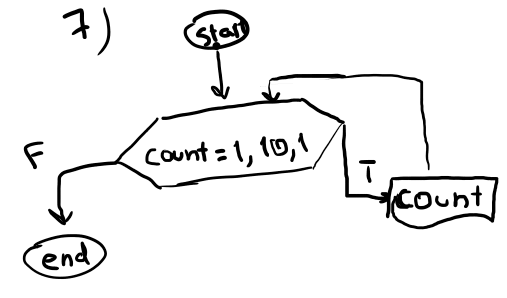 7)
start
count = 1, 10, 1
F
T
count
end